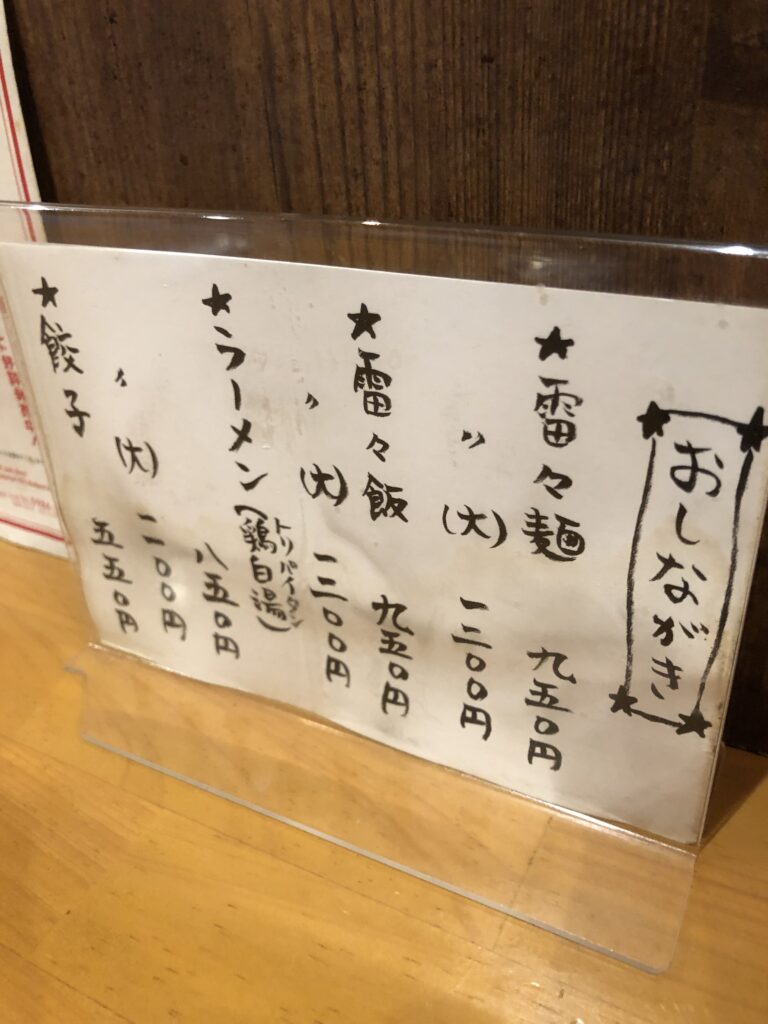 おしながき
★雷々麺 九五〇円
〃(大) 一二〇〇円
★雷々飯 九五〇円
〃(大) 一二〇〇円
★ラーメン(鶏白湯)
トリパイタン
八五〇円
〃(大) 一一〇〇円
★餃子 五五〇円